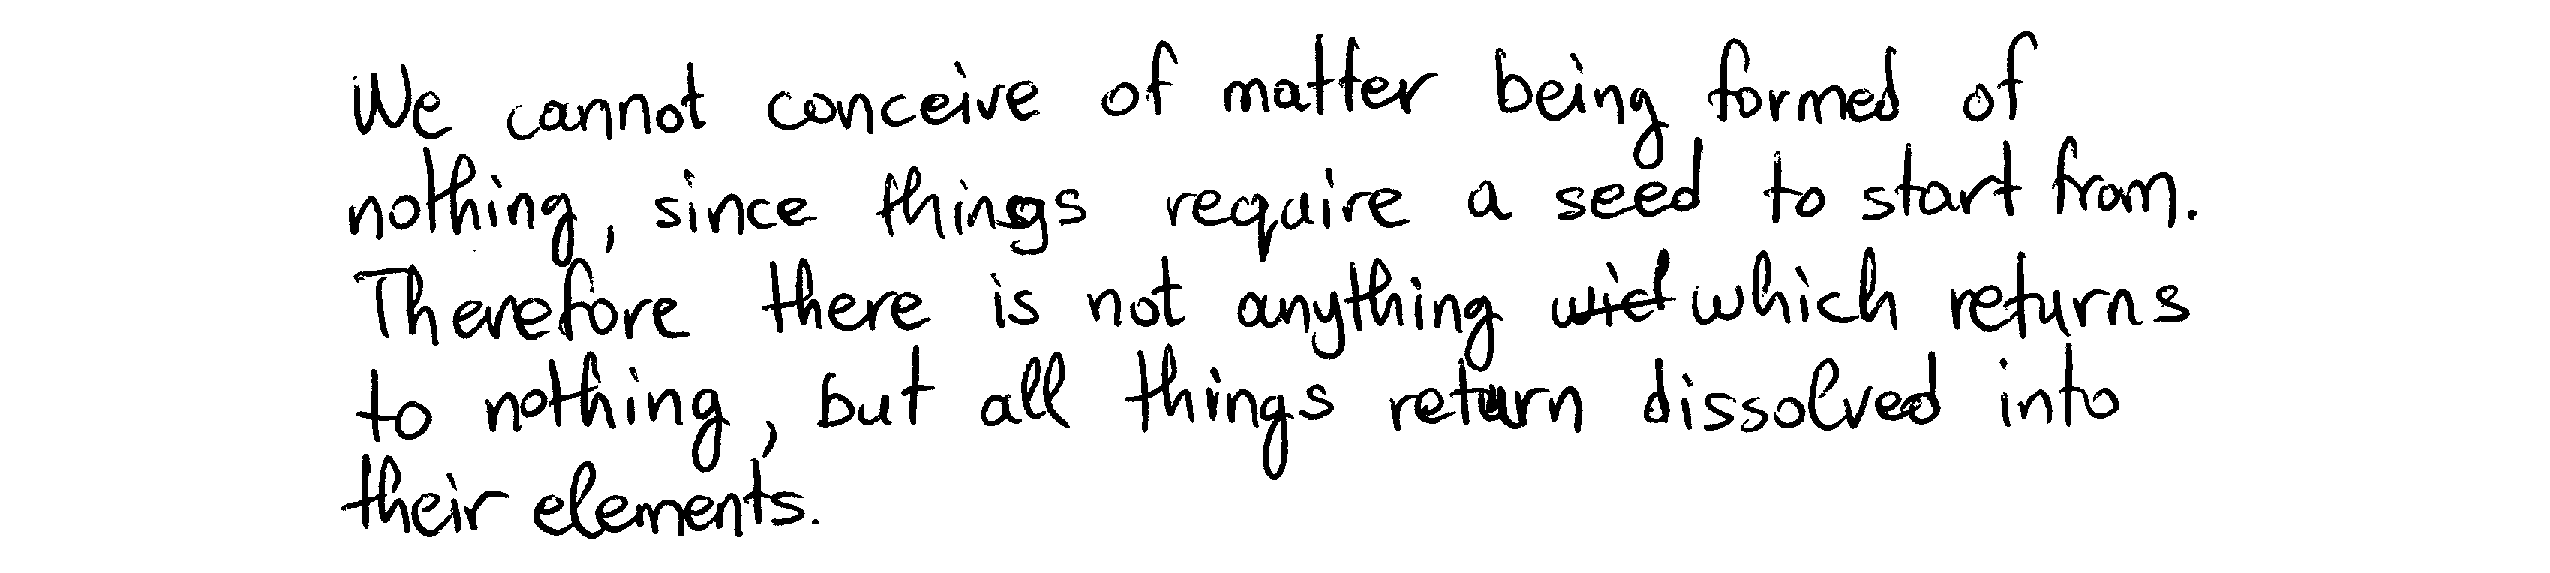 We cannot conceive of matter being formed of
nothing, since things require a seed to start from.
Therefore there is not anything which returns
to nothing, but all things return dissolved into
their elements.